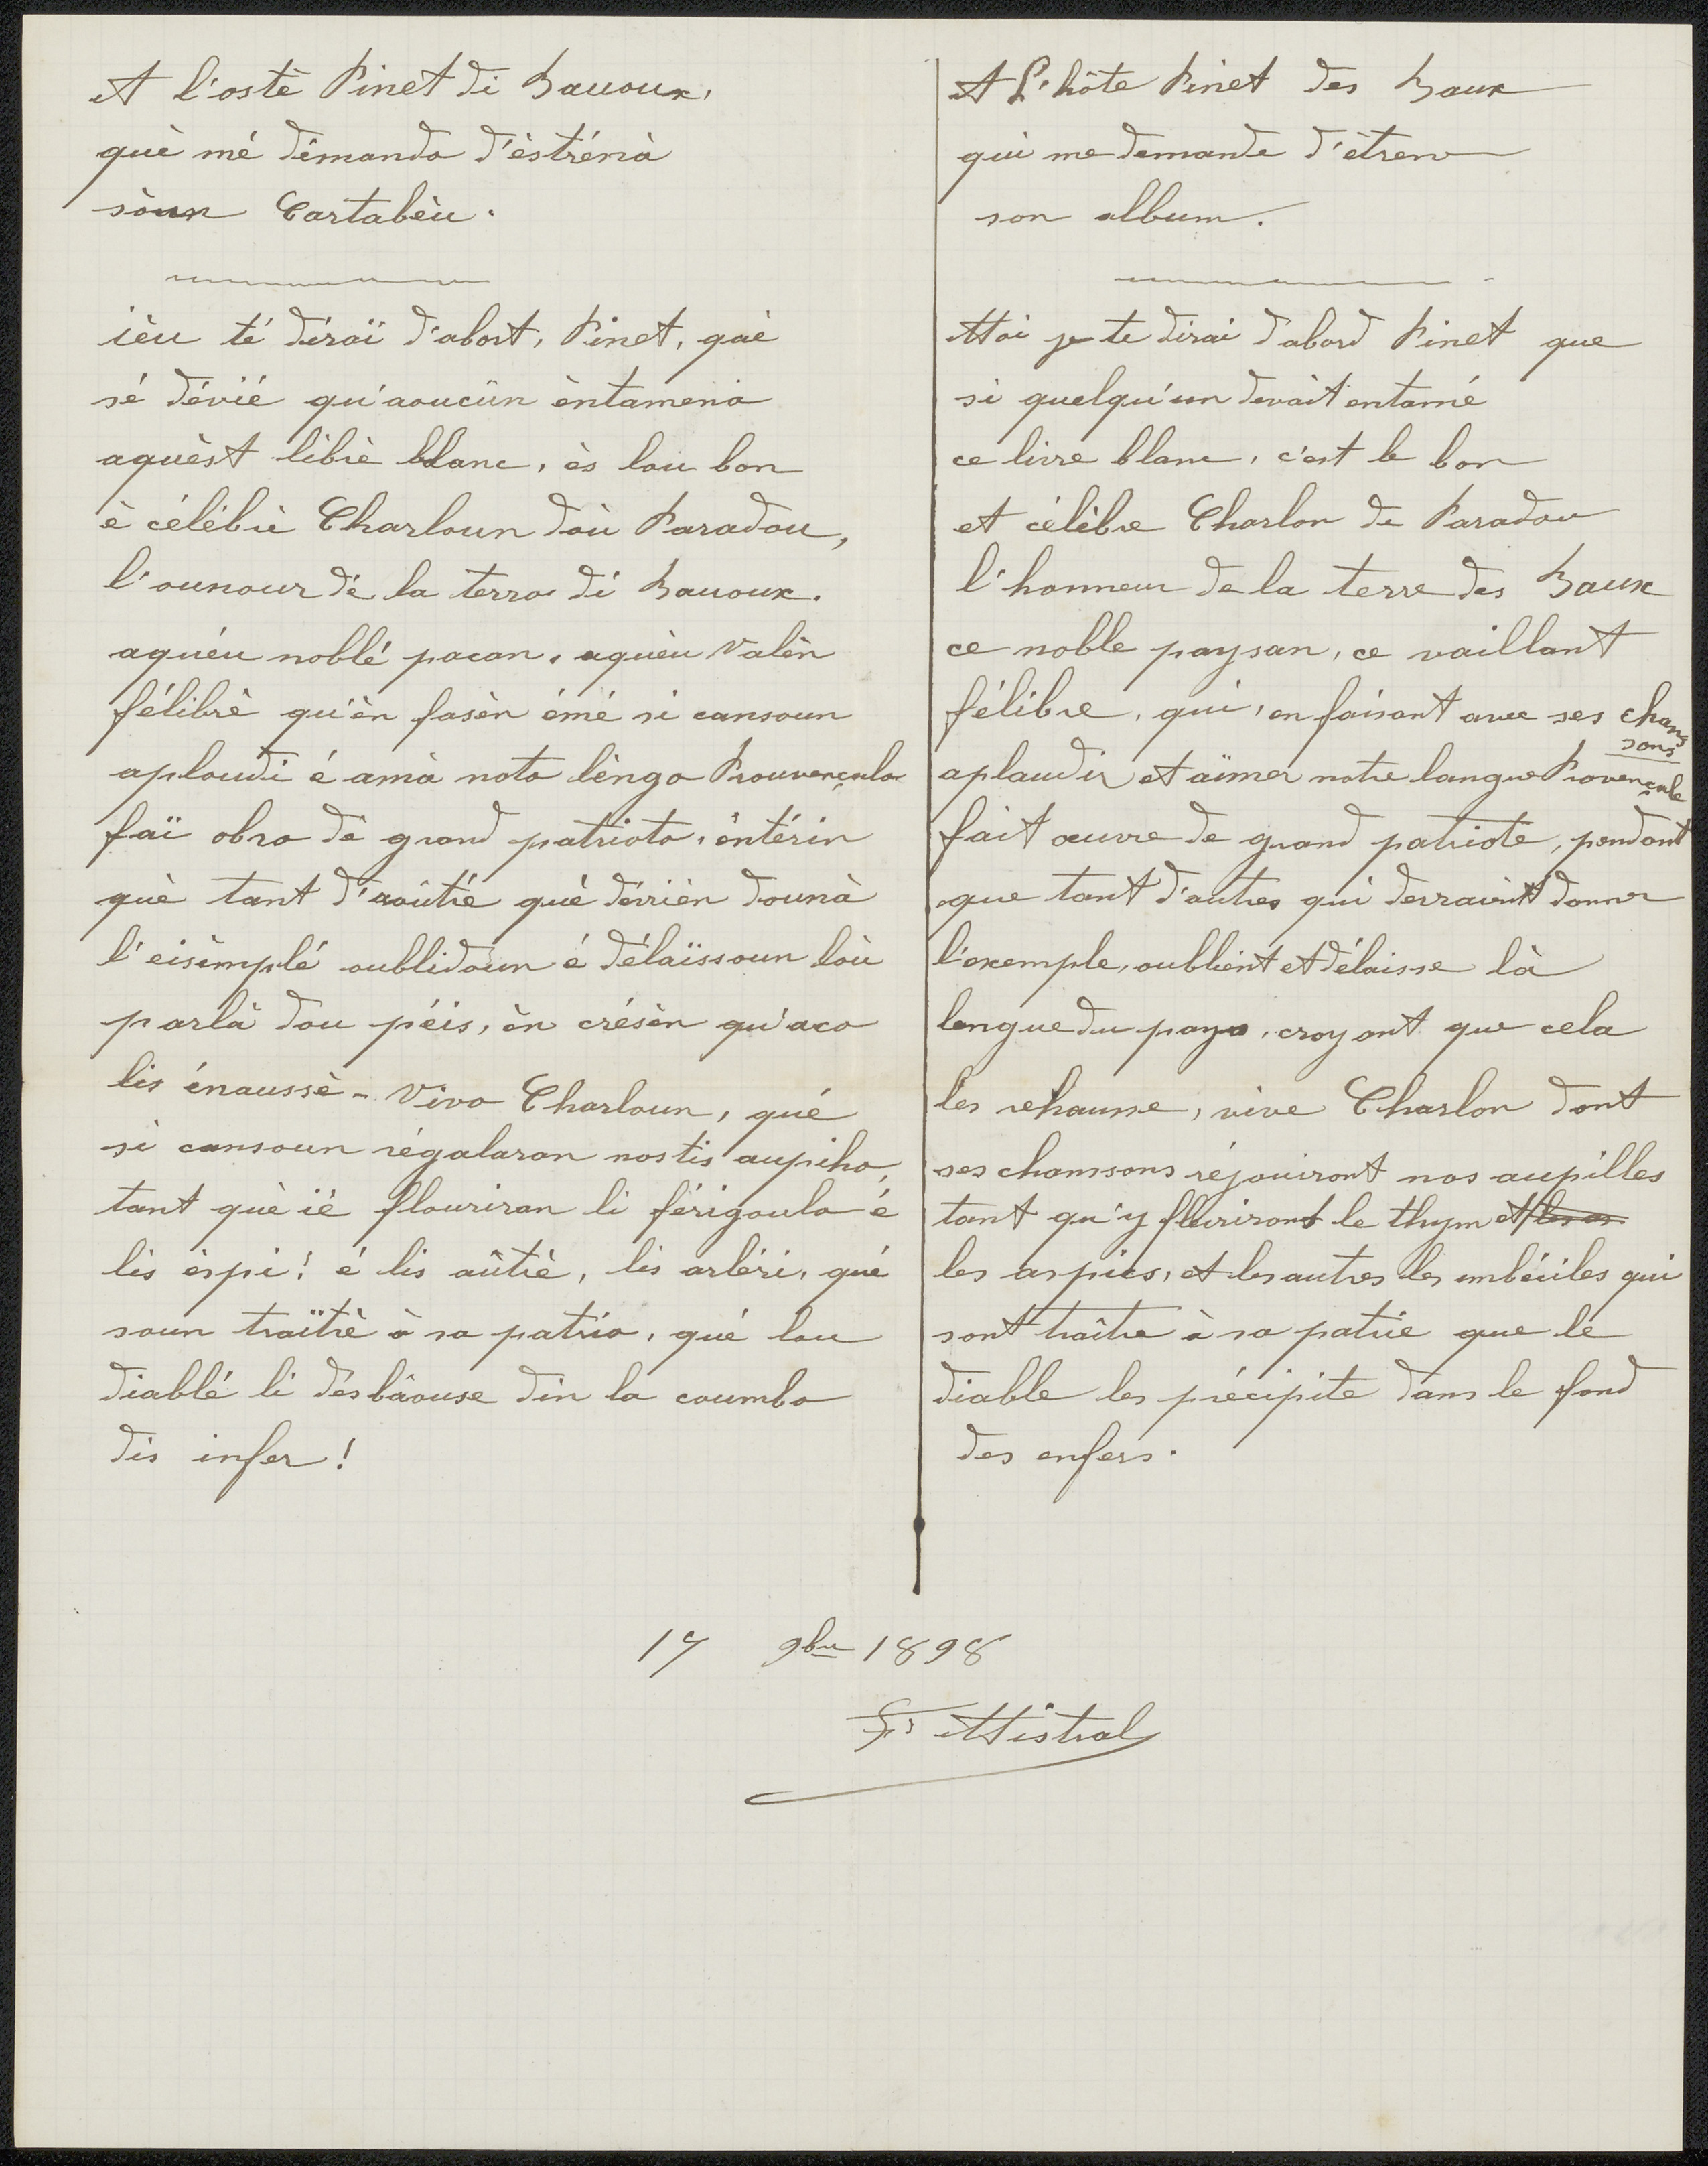 A l'ostè Pinet di Bauoux,
què mé dèmando d'èstrénà
sòun Cartabèu.
ièu té diraï d'abort, Pinet, què
sé dévié qu'aoucün èntamena
aquèst libiè blanc, ès lou bon
è célèbiè Charloun doù Paradou,
l'ounour dé la terro di Bauoux.
aquéu noblé pacan, aquèu valèn
félibrè qu'èn fasèn émé si cansoun
aploudi é amà noto lèngo Prouvençalo
faï obro dè grand patrioto, èntérin
què tant d'aoûtré què dévrièn dounà
l'eisèmplé oublidoun é délaïssoun loù
parlà dou péis, èn crésèn qu'aco
lis énaussè - Vivo Charloun, qué
si cansoun régalaran nostis aupiho,
tant què ïé flouriran li férigoulo é
lis èspi! é lis aûtrè, lis arléri, qué
soun traïtrè à sa patrio, qué lou
diablé li désbâouse din la coumbo
dis infer!
A L'hôte Pinet des Baux
qui me demande d'étren
son album.
Moi je te dirai d'abord Pinet que
si quelqu'un devait entamé
ce livre blanc, c'est le bon
et célèbre Charlon de Paradou
l'honneur de la terre des Baux
ce noble paysan, ce vaillant
félibre, qui, en faisant avec ses chans
sons
aplaudir et aïmer notre langue Provençale
fait œuvre de grand patriote, pendant
que tant d'autres qui devraint donner
l'exemple, oublient et délaisse là
langue du pays, croyant que cela
les rehausse, vive Charlon dont
ses chansons réjouiront nos aupilles
tant qu'y fleuriront le thym et
les aspics, et les autres les imbéciles qui
sont traître à sa patrie que le
diable les précipite dans le fond
des enfers.
17 9bre 1898
F. Mistral